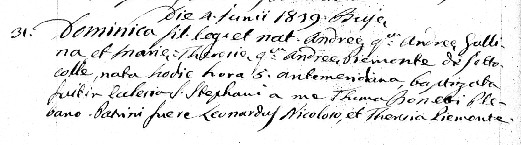 Die 4. Junii 1839. Buje
31. Dominica fil. leg. et nat. Andreę q.m Andreę Galli
na et Marię Theresię q.m Andreę Piemonte di Sotto
colle, nata hodie hora 5. antemeridiana, baptizata
fuit in Ecclesia S. Stephani a me Thoma Bonetti Ple
bano. Patrini fuere Leonardus Nicoloso, et Theresia Piemonte.